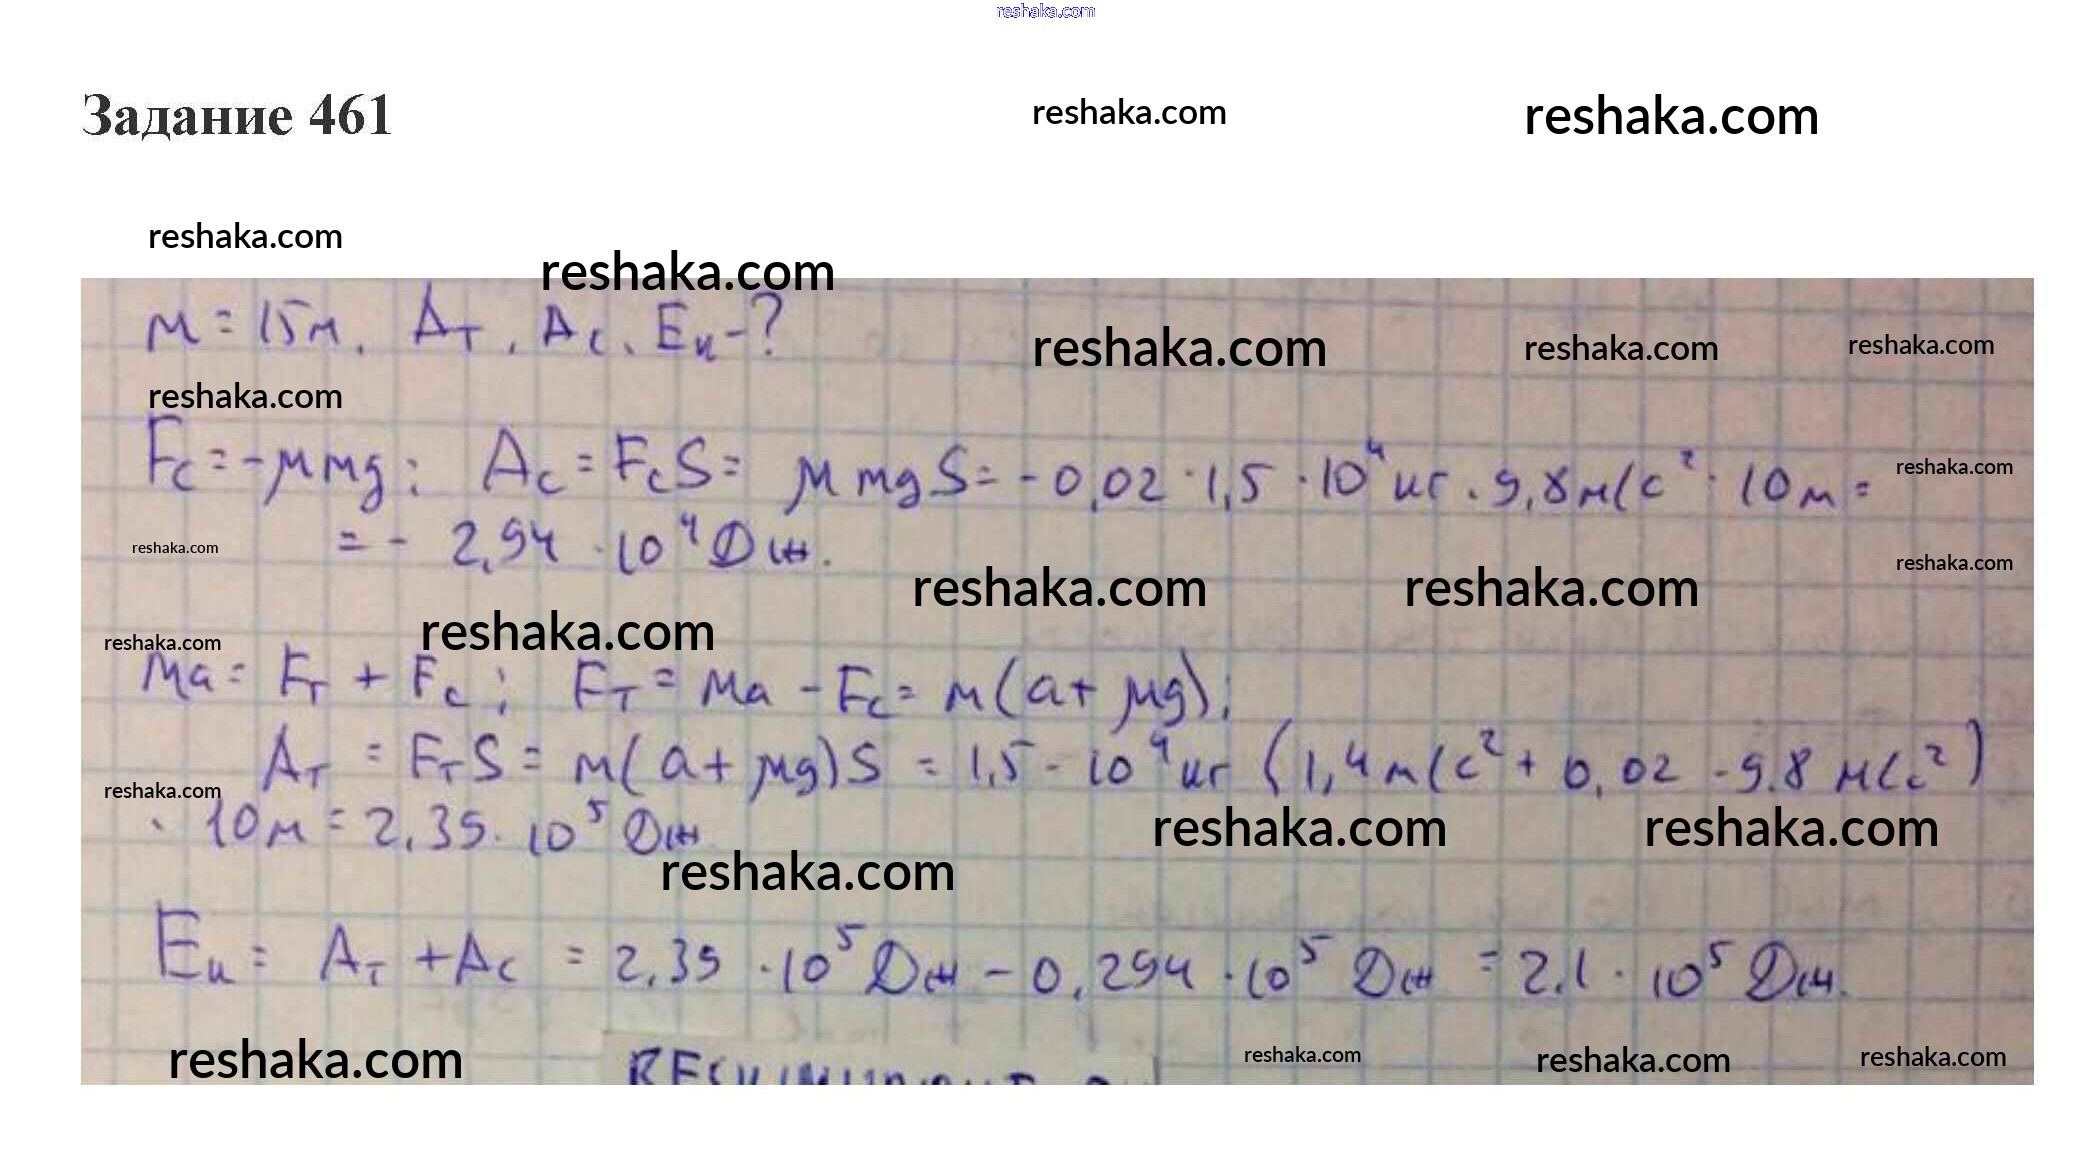 reshaka.com
Задание 461
reshaka.com reshaka.com
reshaka.com
reshaka.com
m = 15м. Aт, Aс, Eк - ?
reshaka.com reshaka.com reshaka.com
reshaka.com
Fс = -μmg; Aс = FсS = μmgS = -0,02 · 1,5 · 10⁴ кг · 9,8 м/с² · 10 м =
reshaka.com
= - 2,94 · 10⁴ Дж.
reshaka.com
reshaka.com
reshaka.com reshaka.com
reshaka.com
reshaka.com
ma = Fт + Fс; Fт = ma - Fс = m(a + μg);
Aт = FтS = m(a + μg)S = 1,5 · 10⁴ кг (1,4 м/с² + 0,02 · 9.8 м/с²)
reshaka.com
· 10м = 2,39 · 10⁵ Дж
reshaka.com reshaka.com
reshaka.com
Eк = Aт + Aс = 2,39 · 10⁵ Дж - 0,294 · 10⁵ Дж = 2.1 · 10⁵ Дж.
reshaka.com
reshaka.com reshaka.com reshaka.com